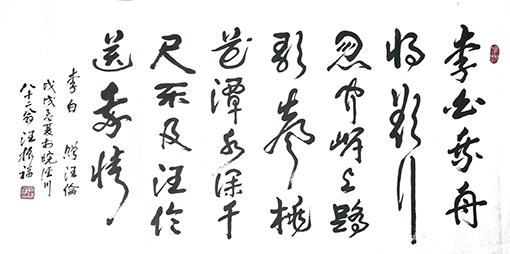 李白乘舟
将欲行
忽闻岸上踏
歌声桃
花潭水深千
尺不及汪伦
送我情
李白 赠汪伦
戊戌夏于皖泾川
八十二翁汪振福